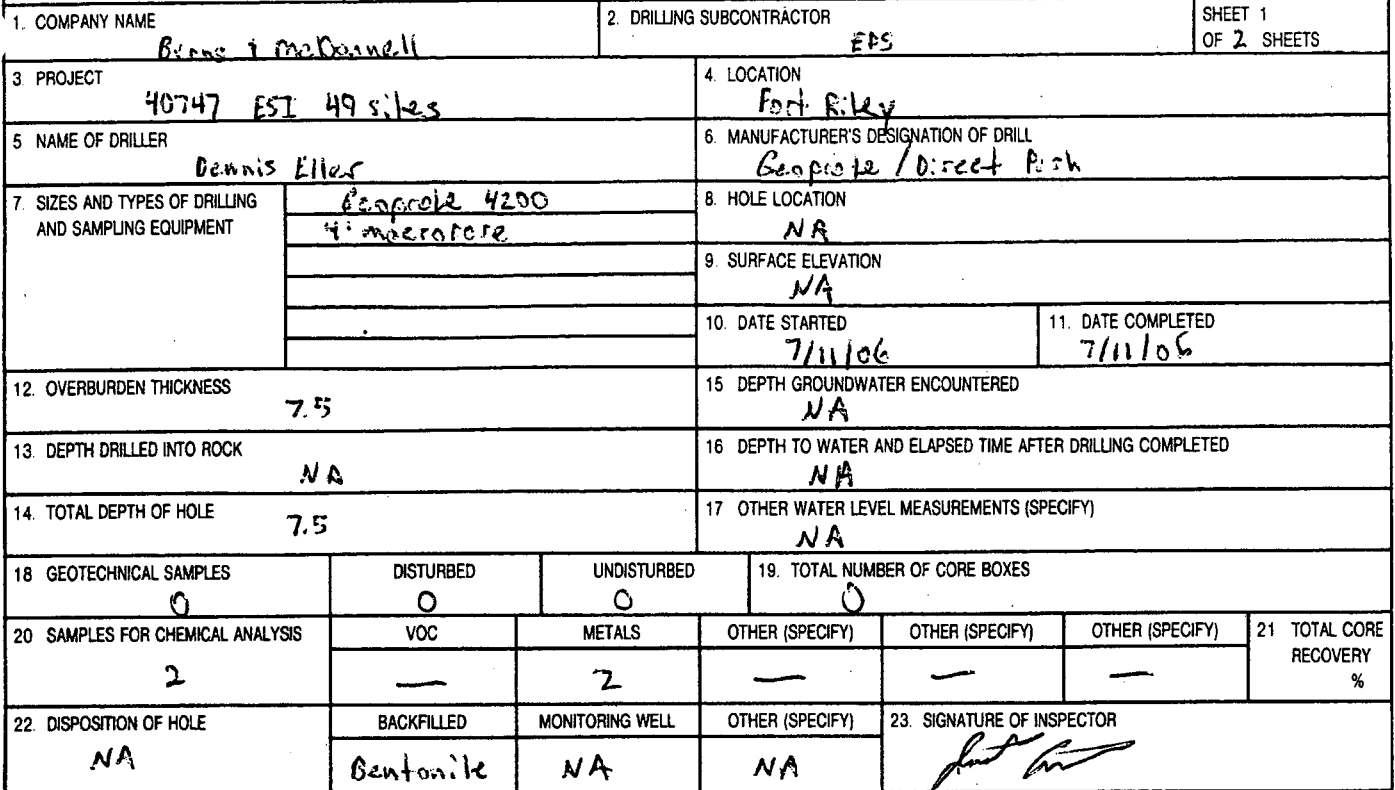 1. COMPANY NAME
Burns & McDonnell
2. DRILLING SUBCONTRACTOR
EPS
SHEET 1
OF 2 SHEETS
3 PROJECT
40747 ESI 49 sites
4. LOCATION
Fort Riley
5 NAME OF DRILLER
Dennis Eller
6. MANUFACTURER'S DESIGNATION OF DRILL
Geoprobe / Direct Push
7. SIZES AND TYPES OF DRILLING
AND SAMPLING EQUIPMENT
Geoprobe 4200
4' macrocore
8. HOLE LOCATION
NA
9. SURFACE ELEVATION
NA
10. DATE STARTED
7/11/06
11. DATE COMPLETED
7/11/06
12. OVERBURDEN THICKNESS
7.5
15 DEPTH GROUNDWATER ENCOUNTERED
NA
13. DEPTH DRILLED INTO ROCK
NA
16 DEPTH TO WATER AND ELAPSED TIME AFTER DRILLING COMPLETED
NA
14. TOTAL DEPTH OF HOLE
7.5
17 OTHER WATER LEVEL MEASUREMENTS (SPECIFY)
NA
18 GEOTECHNICAL SAMPLES
0
DISTURBED
0
UNDISTURBED
0
19. TOTAL NUMBER OF CORE BOXES
0
20 SAMPLES FOR CHEMICAL ANALYSIS
2
VOC
—
METALS
2
OTHER (SPECIFY)
—
OTHER (SPECIFY)
—
OTHER (SPECIFY)
—
21 TOTAL CORE
RECOVERY
%
22. DISPOSITION OF HOLE
NA
BACKFILLED
Bentonite
MONITORING WELL
NA
OTHER (SPECIFY)
NA
23. SIGNATURE OF INSPECTOR